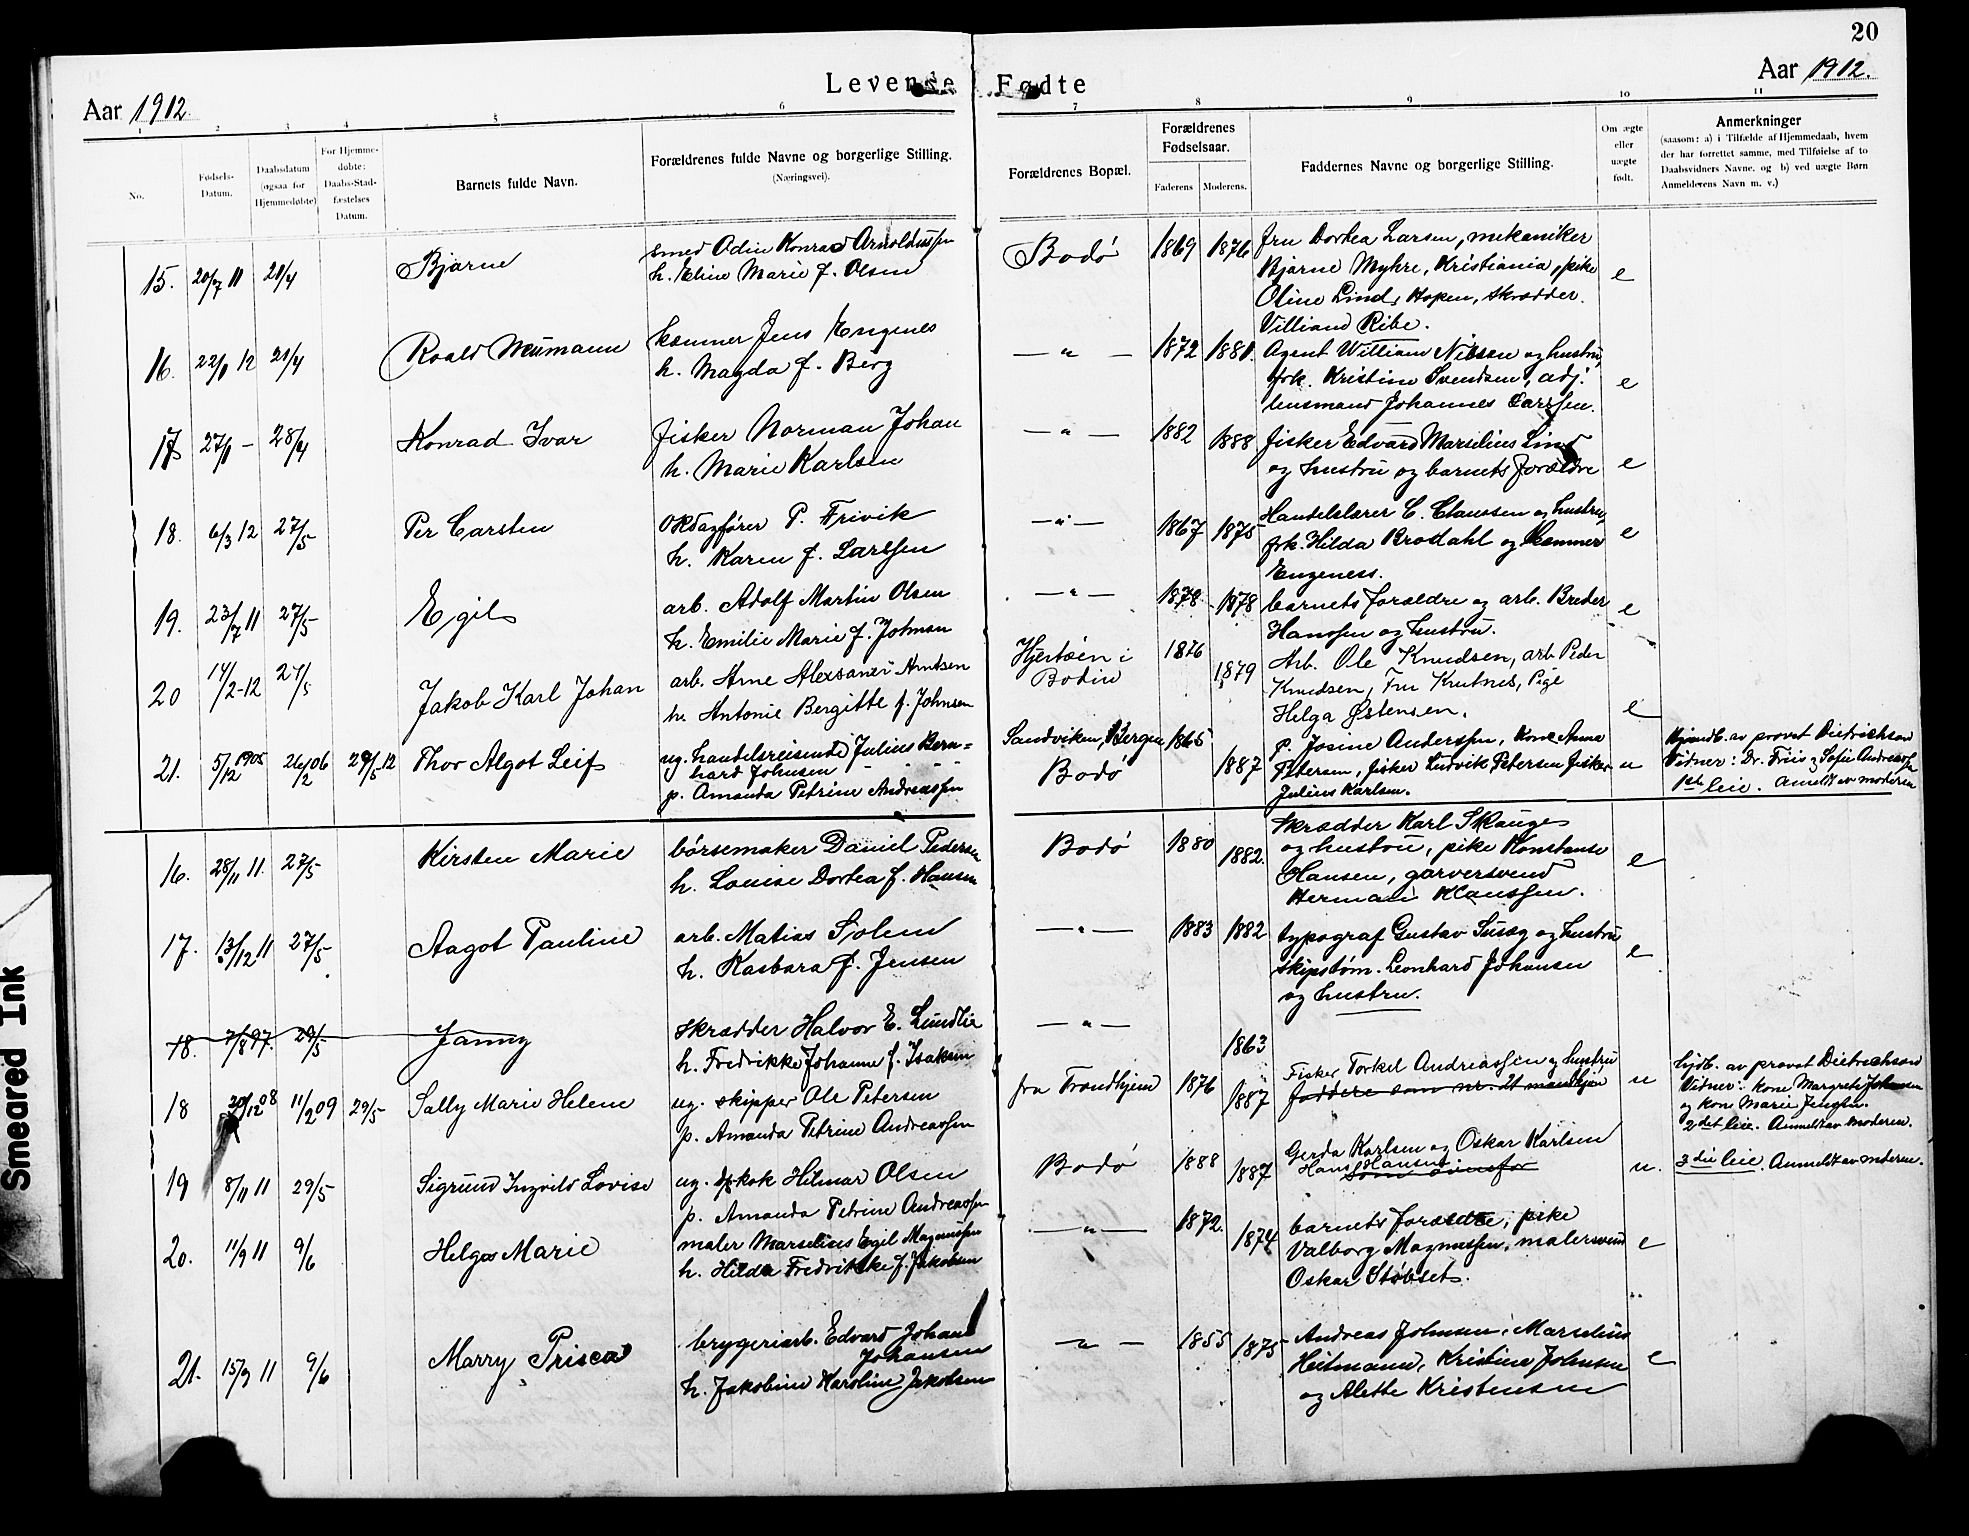 20
Levende Fødte
Aar 1912
Aar 1912.
1 2 3 4 5 6 7 8 9 10 11
No.
Fødsels-
Datum.
Daabsdatum
(ogsaa for
Hjemmedøbte)
For Hjemme-
døbte:
Daabs-Stad-
fæstelses
Datum.
Barnets fulde Navn.
Forældrenes fulde Navne og borgerlige Stilling.
(Næringsvei).
Forældrenes Bopæl.
Forældrenes
Fødselsaar.
Faderens Moderens.
Faddernes Navne og borgerlige Stilling.
Om ægte
eller
uægte
født.
Anmerkninger
(saasom: a) i Tilfælde af Hjemmedaab, hvem
der har forrettet samme, med Tilføielse af to
Daabsvidners Navne. og b) ved uægte Børn
Anmelderens Navn m. v.)
15. 20/7 11 21/4 Bjarne
smed Odin Konrad Arnoldussen
h. Eline Marie f. Olsen
Bodø 1869 1876
fru Dortea Larsen, mekaniker
Bjarne Myhre, Kristiania, pike
Oline Lind, Hopen, skrædder
Villiand Ribe.
e
16. 22/1 12 21/4 Roald Neumann
kæmner Jens Engenes
h. Magda f. Berg
— " — 1872 1881.
Agent William Nilsen og hustru,
frk. Kristine Svendsen, adj.
lensmand Johannes Carlsen.
e
17 27/1 — 28/4 Konrad Ivar
fisker Norman Johan
h. Marie Karlsen
— " — 1882 1888
fisker Edvard Marselius Lind
og hustru og barnets forældre
e
18. 6/3 12 27/5 Per Carsten
Oldagfører P. Frivik
h. Karen f. Larssen
— " — 1867 1875
Handelslærer C. Clausen og hustru,
frk. Hilda Brodahl og kæmner
Engeness.
e
19. 23/7 11 27/5 Egil
arb. Adolf Martin Olsen
h. Emilie Marie f. Johnsen
— " — 1878 1878
barnets forældre og arb. Breder
Hanssen og hustru.
e
20 14/2-12 27/5 Jakob Karl Johan
arb. Arne Alexsander Arntsen
h. Antonie Bergitte f. Johnsen
Hjertøen i
Bodin
1876 1879
Arb. Ole Knudsen, arb. Peder
Knudsen, Fru Knutnes, Pige
Helga Østensen.
e
21. 5/12 1905 26/2 06 29/5 12 Thor Algot Leif
ug. handelsreisende Julius Bern=
hard Johnsen
p. Amanda Petrine Andreassen
Sandviken, Bergen
Bodø
1865 1887
P. Josine Anderssen, Kone Anne
Petersen, fisker Ludvik Petersen fisker
Julius Karlsen.
u
Hjemdb. av provst Dietrichson
Vidner: Dr. Friis og Sofie Andreassen
1ste leie. Anmeldt av moderen
16. 28/11 11. 27/5 Kirsten Marie
børsemaker Daniel Pedersen
h. Louise Dortea f. Hansen
Bodø 1880 1882.
Skrædder Karl Skauge
og hustru, pike Konstanse
Hansen, garversvend
Herman Klaussen.
e
17. 13/12 11 27/5 Aagot Pauline
arb. Matias Solem
h. Kasbara f. Jensen
— " — 1883 1882
typograf Gustav Susæg og hustru
skipstøm. Leonhard Johansen
og hustru.
e
18. 7/8 97. 29/5 Janny
skrædder Halvor E. Lundlie
h. Fredrikke Johanne f. Isaksen
— " — 1863
18 20/12 08 11/2 09 29/5 Sally Marie Helene
ug. skipper Ole Petersen
p. Amanda Petrine Andreassen
fra Trondhjem 1876 1887
Fisker Torkel Andreassen og hustru
faddere som nr. 21
u
Hjdb. av provst Dietrichson
Vidner: kone Margrete Johansen
og kone Marie Jensen.
2det leie. Anmeldt av moderen.
19 8/11 11 29/5 Sigrund Ingvild Lovise
ug. kok Hilmar Olsen
p. Amanda Petrine Andreassen
Bodø 1888 1887
Gerda Karlsen og Oskar Karlsen
Hans Hansen
som ovenfor
u.
3die leie. Anmeldt av moderen.
20. 11/9 11 9/6 Helga Marie
maler Marselius Egil Magnussen
h. Hilda Fredrikke f. Jakobsen
— " — 1872. 1874
barnets forældre, pike
Valborg Magnussen, malersvend
Oskar Støbset.
e
21. 15/9 11 9/6 Marry Prisca
bryggeriarb. Edvard Johan
Johansen
h. Jakobine Karoline Jakobsen
— " — 1855 1875
Andreas Johnsen, Marselius
Heitmann, Kristine Johnsen
og Alette Kristensen
e
Smeared Ink